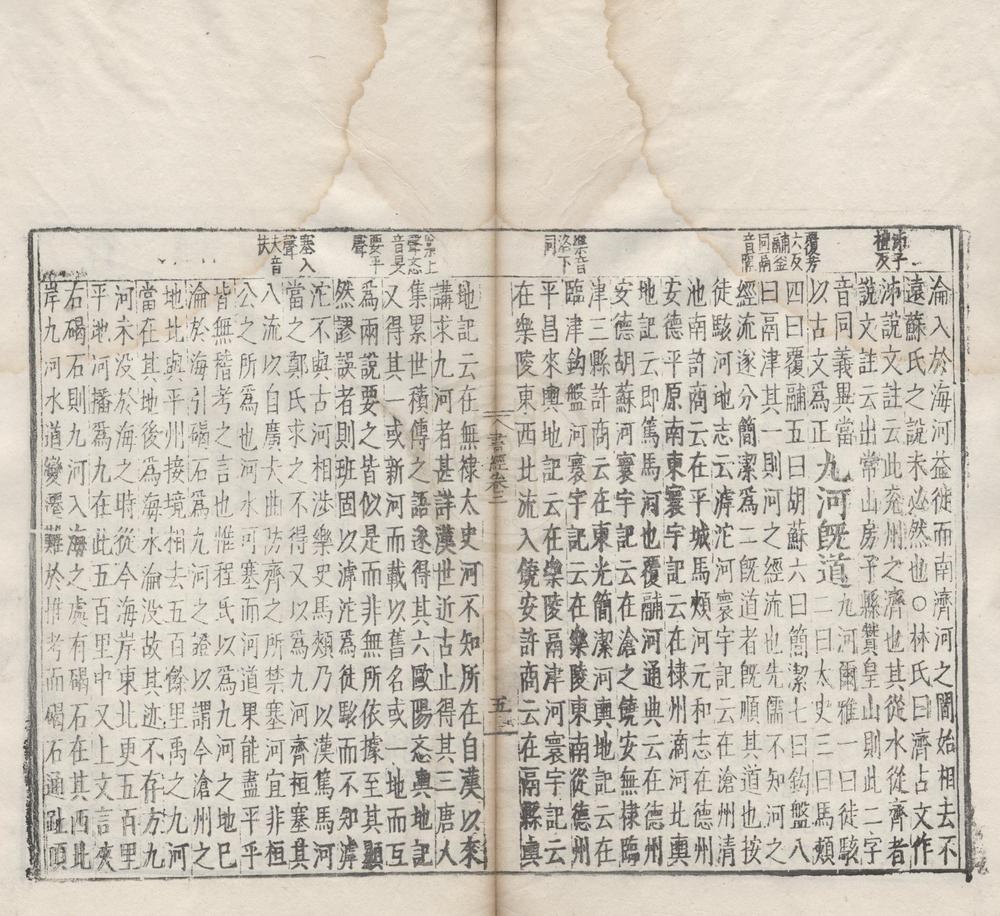 沛子
禮反
覆芳
六反
鬴釜
同鬲
音隔
樂音
洛下
同
累上
聲忞
音旻
要平
聲
塞入
聲
夫音
扶
淪入於海河益徙而南濟河之間始相去不
遠蘇氏之說未必然也○林氏曰濟占文作
沛說文註云此兗州之濟也其從水從齊者
說文註云出常山房子縣贊皇山則此二字
音同義異當
以古文為正
九河旣道
九河爾雅一曰徒駭
二曰太史三曰馬頰
四曰覆鬴五曰胡蘇六曰簡潔七曰鉤盤八
曰鬲津其一則河之經流也先儒不知河之
經流遂分簡潔為二旣道者旣順其道也按
徒駭河地志云滹沱河寰宇記云在滄州清
池南許商云在平城馬頰河元和志在德州
安德平原南東寰宇記云在棣州滴河北輿
地記云即篤馬河也覆鬴河通典云在德州
安德胡蘇河寰宇記云在滄之饒安無棣臨
津三縣許商云在東光簡潔河輿地記云在
臨津鉤盤河寰宇記云在樂陵東南從德州
平昌來輿地記云在樂陵鬲津河寰宇記云
在樂陵東西北流入饒安許商云在鬲縣輿
書經卷三
五
地記云在無棣太史河不知所在自漢以來
講求九河者甚詳漢世近古止得其三唐人
集累世積傳之語遂得其六歐陽忞輿地記
又得其一或新河而載以舊名或一地而互
為兩說要之皆似是而非無所依據至其顯
然謬誤者則班固以滹沱為徒駭而不知滹
沱不與古河相涉樂史馬頰乃以漢篤馬河
當之鄭氏求之不得又以為九河齊桓塞其
八流以自廣夫曲防齊之所禁塞河宜非桓
公之所為也河水可塞而河道果能盡平乎
皆無稽考之言也惟程氏以為九河之地已
淪於海引碣石為九河之證以謂今滄州之
地北與平州接境相去五百餘里禹之九河
當在其地後為海水淪沒故其迹不存方九
河未沒於海之時從今海岸東北更五百里
平地河播為九在此五百里中又上文言夾
右碣石則九河入海之處有碣石在其西北
岸九河水道變遷難於推考而碣石通趾頂